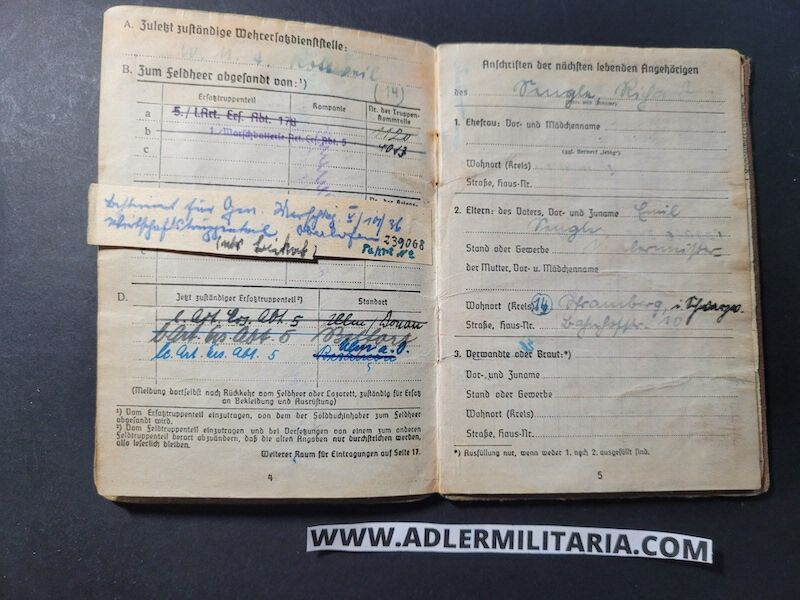 A. Zuletzt zuständige Wehrersatzdienststelle:
W. M. A. Rottweil
B. Zum Feldheer abgesandt von:¹)
(14)
Ersatztruppenteil Kompanie Nr. der Truppen-Stammrolle
a 5./l.Art. Ers. Abt. 178
b 1. Marschbatterie Art. Ers. Abt. 5 1120
c 4013
bestimmt für Gen.
Wirtschaftstruppenteil
239068
D. Jetzt zuständiger Ersatztruppenteil²) Standort
l. Art. Ers. Abt. 5 Ulm/Donau
l. Art. Ers. Abt. 5
l. Art. Ers. Abt. 5 Ulm a. D.
(Meldung dortselbst nach Rückkehr vom Feldheer oder Lazarett, zuständig für Ersatz
an Bekleidung und Ausrüstung)
¹) Vom Ersatztruppenteil einzutragen, von dem der Soldbuchinhaber zum Feldheer
abgesandt wird.
²) Vom Feldtruppenteil einzutragen und bei Versetzungen von einem zum anderen
Feldtruppenteil derart abzuändern, daß die alten Angaben nur durchstrichen werden,
also leserlich bleiben.
Weiterer Raum für Eintragungen auf Seite 17.
4
Anschriften der nächsten lebenden Angehörigen
des Sengle,
1. Ehefrau: Vor- und Mädchenname
(ggf. Vermerk „ledig“)
Wohnort (Kreis)
Straße, Haus-Nr.
2. Eltern: des Vaters, Vor- und Zuname Emil
Sengle
Stand oder Gewerbe
der Mutter, Vor- u. Mädchenname
Wohnort (Kreis) 14 Schramberg, i. Schwarzw.
Straße, Haus-Nr. Bahnhofstr. 10
3. Verwandte oder Braut:*)
Vor- und Zuname
Stand oder Gewerbe
Wohnort (Kreis)
Straße, Haus-Nr.
*) Ausfüllung nur, wenn weder 1. noch 2. ausgefüllt sind.
5
WWW.ADLERMILITARIA.COM